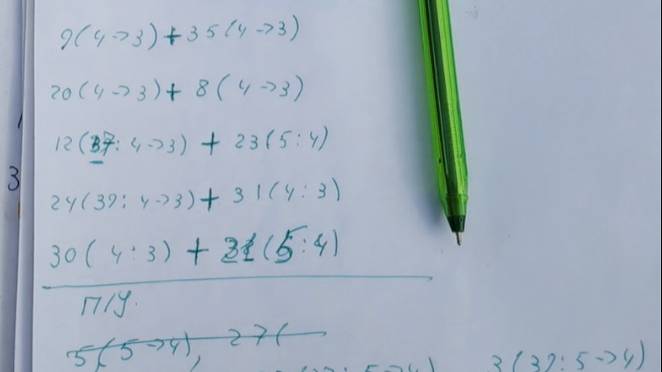 9(4->3)+35(4->3)
20(4->3)+8(4->3)
12(37:4->3)+23(5:4)
24(39:4->3)+31(4:3)
30(4:3)+(5:4)
П/У.
5(5->4), 27(
:5->4) 3(39:5->4)
3